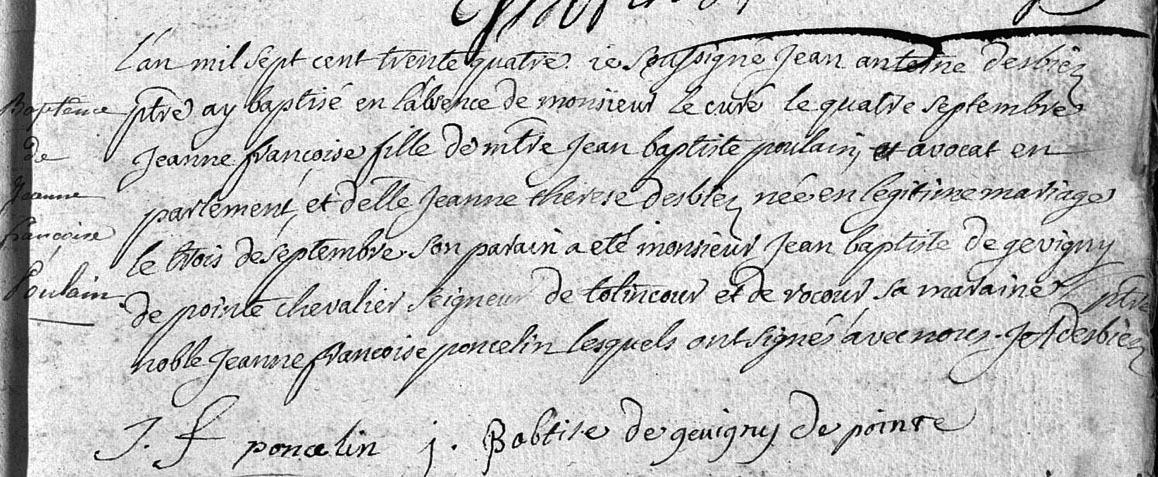 L'an mil sept cent trente quatre. ie soussigné Jean antoine desbiez
Baptême ptre ay baptisé en l'absence de monsieur le curé le quatre septembre
de Jeanne françoise fille de mtre Jean baptiste poulain, et avocat en
Jeanne parlement, et delle Jeanne therese desbiez née en légitime mariage
françoise le trois de septembre son parain a eté monsieur Jean baptiste de gevigny
Poulain. de pointe chevalier seigneur de tolincour et de rocour sa maraine
noble Jeanne françoise poncelin lesquels ont signés avec nous. JA desbiez ptre
J. f poncelin j. Babtise de gevigny de pointe